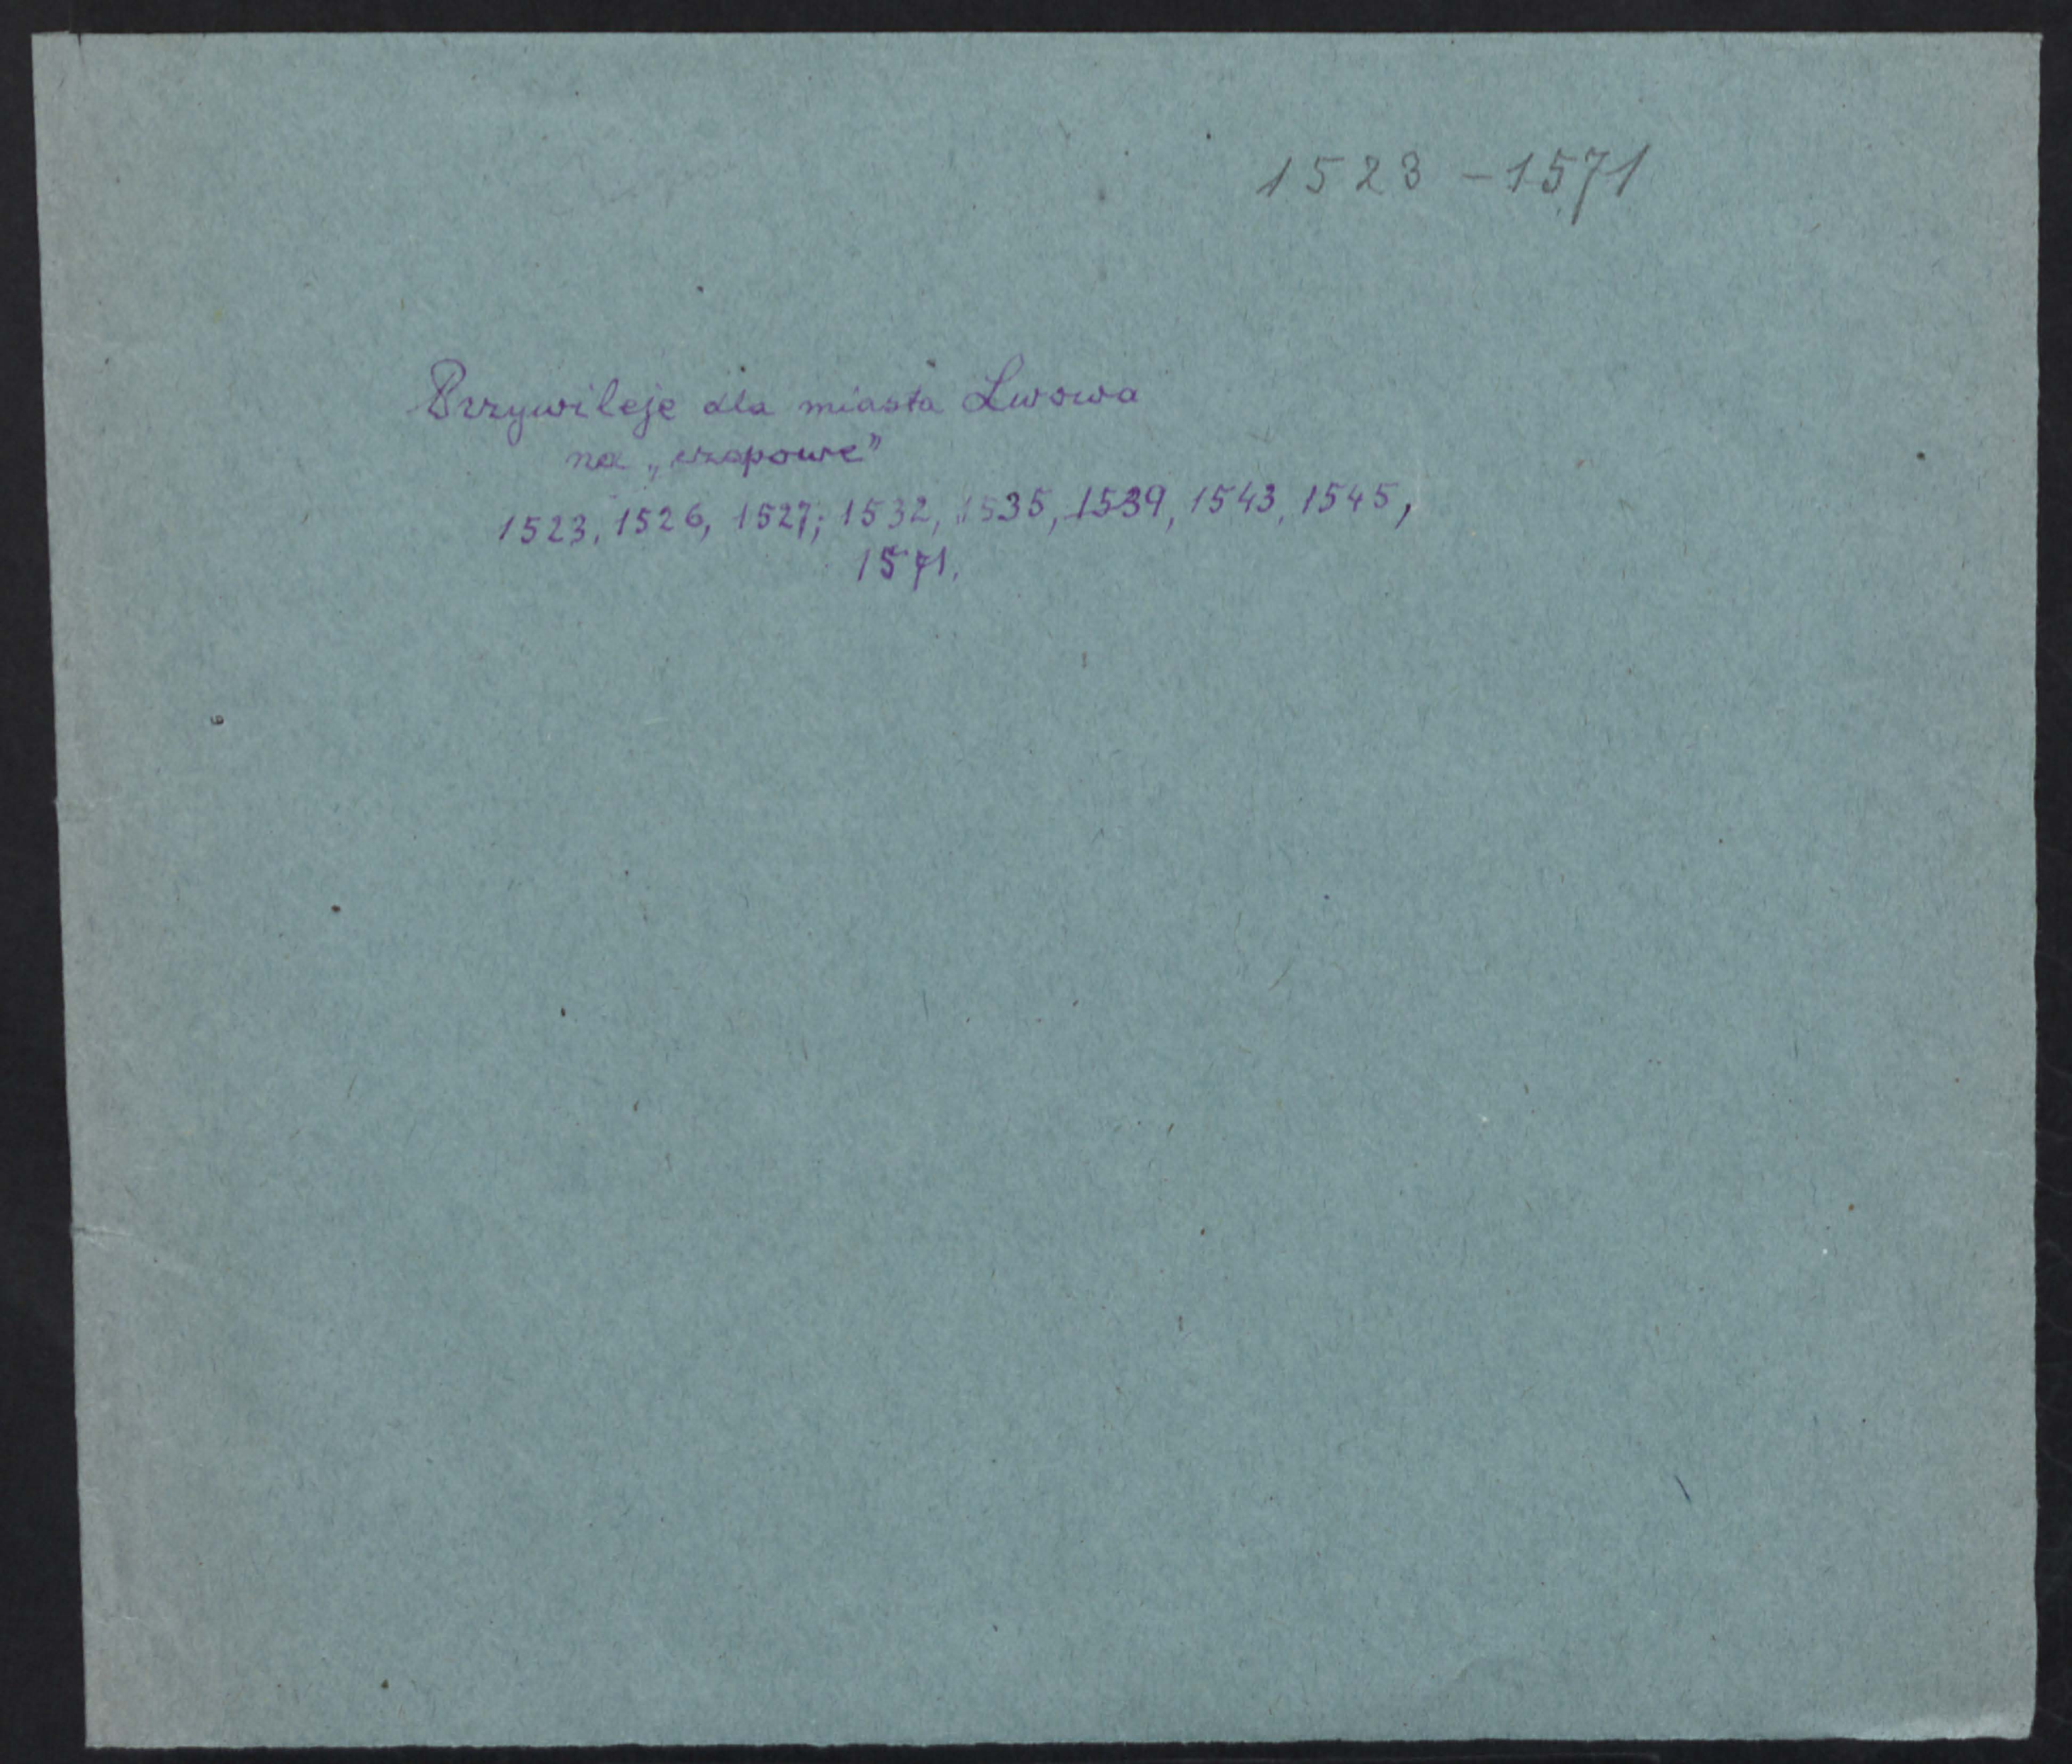 1523 – 1571
Przywileje dla miasta Lwowa
na „czopowe”
1523, 1526, 1527; 1532, 1535, 1539, 1543, 1545,
1571.